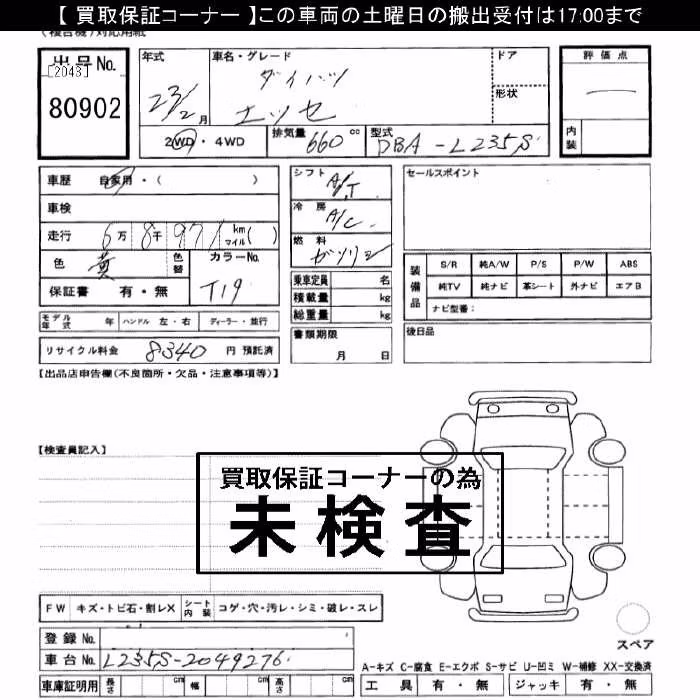 【 買取保証コーナー 】この車両の土曜日の搬出受付は17:00まで
(複合機)対応用紙
出品No.
[2043]
80902
年式 23/2月
車名・グレード ダイハツ エッセ
ドア
形状
2WD・4WD
排気量 660 cc
型式 DBA-L235S
評価点 —
内装
車歴 自家用・( )
車検
走行 6万 8千 971 km マイル( )
色 黄 色替
カラーNo. T19
保証書 有・無
モデル年式 年 ハンドル 左・右 ディーラー・並行
リサイクル料金 8340 円 預託済
シフト A/T
冷房 A/C
燃料 ガソリン
乗車定員 名
積載量 kg
総重量 kg
書類期限
月 日
セールスポイント
装備品
S/R 純A/W P/S P/W ABS
純TV 純ナビ 革シート 外ナビ エアB
ナビ型番:
後日品
【出品店申告欄(不良箇所・欠品・注意事項等)】
【検査員記入】
買取保証コーナーの為
未検査
FW キズ・トビ石・割レX シート内装 コゲ・穴・汚レ・シミ・破レ・スレ
登録No.
車台No. L235S-2049276
車庫証明用 長さ cm 幅 cm 高さ cm
スペア
A-キズ C-腐食 E-エクボ S-サビ U-凹ミ W-補修 XX-交換済
工具 有・無 ジャッキ 有・無